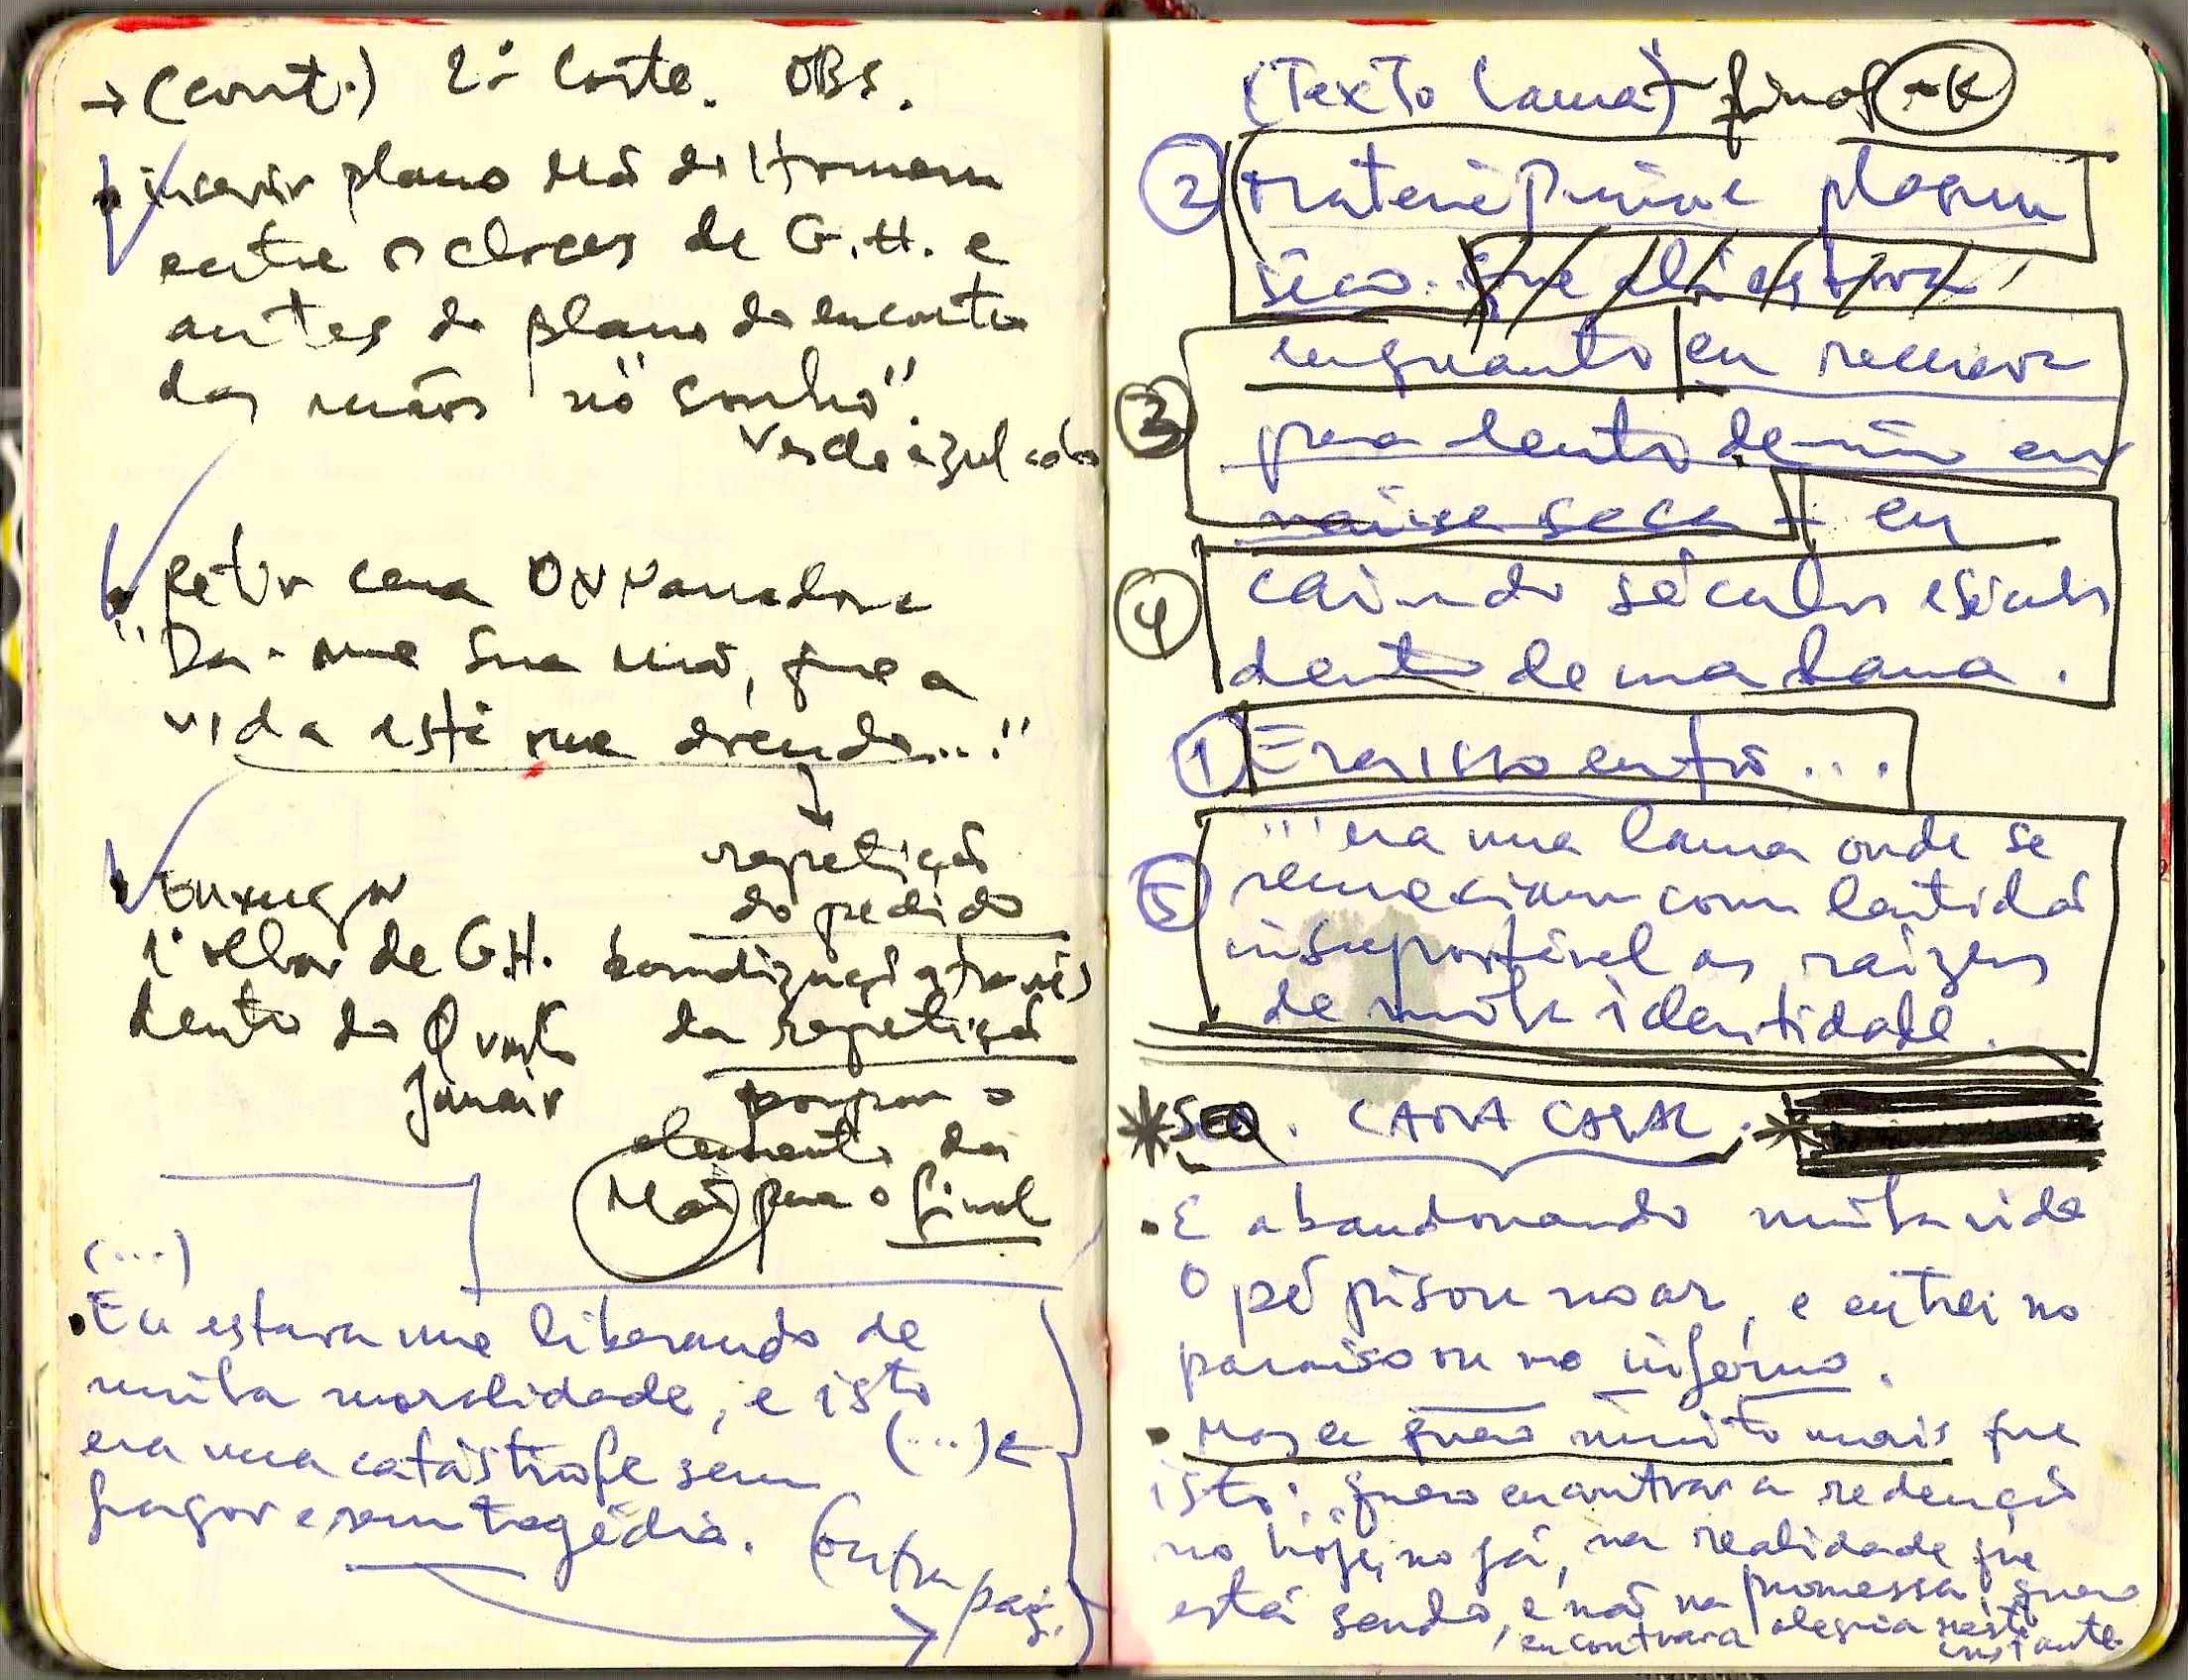 → (cont.) 2º Corte. OBS.
• inserir plano Mão do Homem
entre os closes de G.H. e
antes do plano do encontro
das mãos no "sonho".
Verde azulado
• Retir cena ON Narradora
"Da-me sua mão, que a
vida está me doendo..."
↓
repetição
do pedido
• Enxugar
1º olhar de G.H.
banalização através
dentro do Quarto
da repetição
Janair
poupar o
elemento da
Mão para o final
(...)
• Eu estava me liberando de
minha moralidade, e isto
era uma catástrofe sem (...) ←
fragor e sem tragédia. (outra pág.
(Texto Lama) – final – K
② matéria prima plasma
seco. que ali estava,
③ enquanto eu recuava
para dentro de mim em
náusea seca + eu
④ caindo séculos e séculos
dentro de uma lama.
① Era isso então...
⑤ ... era uma lama onde se
remexiam com lentidão
insuportável as raízes
de minha identidade.
* SEQ. CARA CARAC. *
• E abandonando minha vida
O pé pisou no ar, e entrei no
paraíso ou no inferno.
• Mas eu quero muito mais que
isto: quero encontrar a redenção
no hoje, no já, na realidade que
está sendo, e não na promessa, quero
encontrar a alegria neste
instante